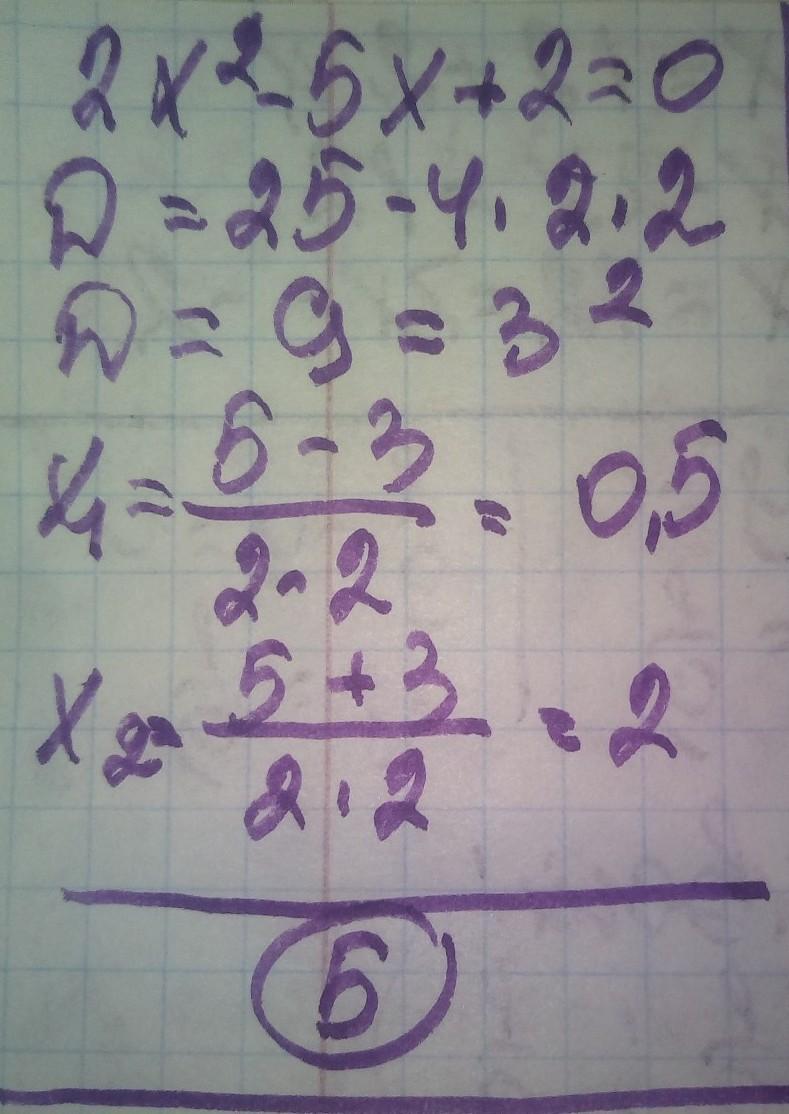 2x²-5x+2=0
D=25-4·2·2
D=9=3²
x₁=5-3/2·2=0,5
x₂=5+3/2·2=2
5